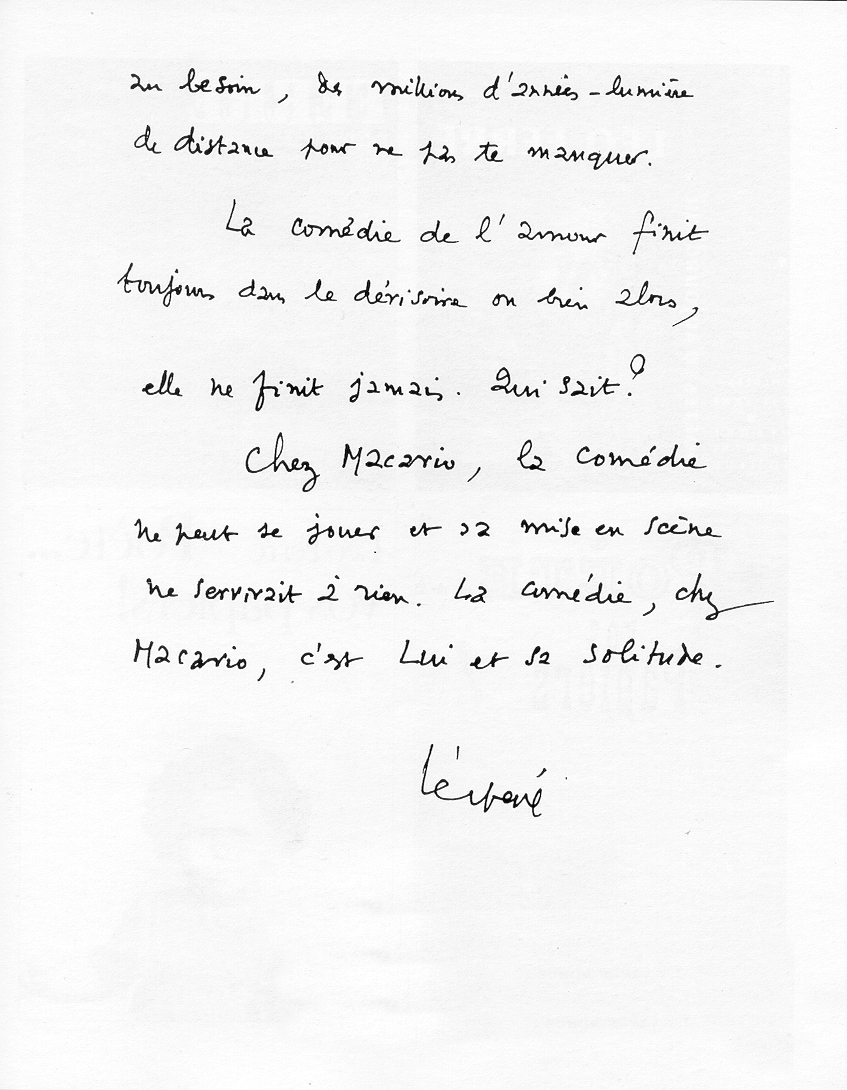 au besoin, des millions d'années-lumière
de distance pour ne pas te manquer.
La comédie de l'amour finit
toujours dans le dérisoire ou bien alors,
elle ne finit jamais. Qui sait?
Chez Macario, la comédie
ne peut se jouer et sa mise en scène
ne servirait à rien. La comédie, chez
Macario, c'est Lui et sa solitude.